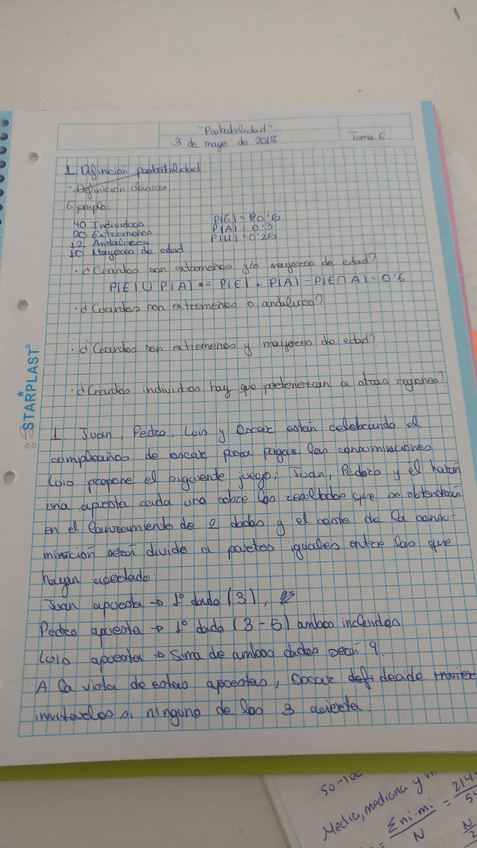 "Probabilidad"
3 de mayo de 2018
Tema 6
1. Definición probabilidad
- Definición clásica
Ejemplo:
40 Individuos
20 Extremeños
12 Andaluces
10 Mayores de edad
P(A) = 0'3
· ¿Cuantos son extremeños y/o mayores de edad?
· ¿Cuantos son extremeños o andaluces?
· ¿Cuantos son extremeños y mayores de edad?
· ¿Cuantos individuos hay que pertenezcan a otras regiones?
STARPLAST
1. Juan, Pedro, Luis y Oscar están celebrando el
cumpleaños de oscar para pagar las consumiciones
Luis propone el siguiente juego: Juan, Pedro y él harán
una apuesta cada uno sobre los resultados que se obtendrán
en el lanzamiento de 2 dados y el coste de la consu-
mición será divide a partes iguales entre los que
hayan acertado.
Juan apuesta → 1º dado (3),
Pedro apuesta → 1º dado (3-5) ambos incluidos
Luis apuesta → Suma de ambos dados será 9.
A la vista de estas apuestas, Oscar decide
invitarlos si ninguno de los 3 acierta.
50-100
Media, mediana y
Σ ni·mi
N
=
214